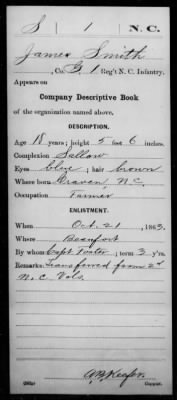 S 1 N.C.
James Smith
, Co. G, 1 Reg't N. C. Infantry.
Appears on
Company Descriptive Book
of the organization named above.
DESCRIPTION.
Age 18 years; height 5 feet 6 inches.
Complexion Sallow
Eyes blue; hair brown
Where born Craven, N.C.
Occupation Farmer
ENLISTMENT.
When Oct. 21, 1863.
Where Beaufort
By whom Capt. Foster; term 3 y'rs.
Remarks: Transferred from 2d
N.C. Vols.
A.B. Keefer
Copyist.